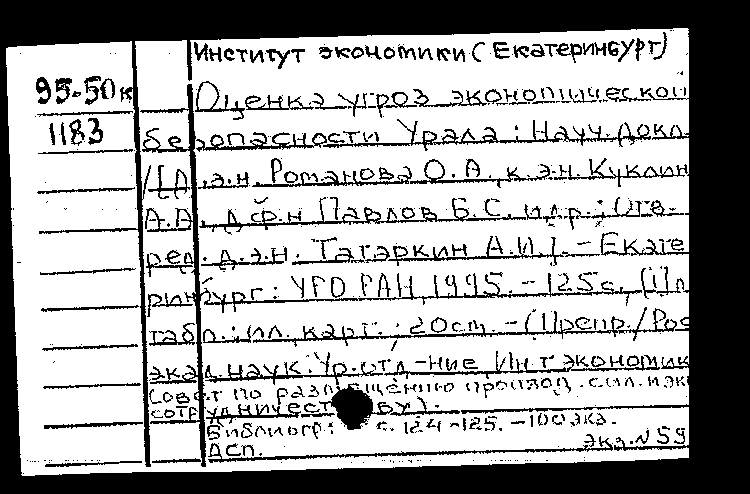 Институт экономики (Екатеринбург)
95-50к
Оценка угроз экономической
1183
безопасности Урала: Науч. докл.
/[Д.э.н. Романова О.А., к.э.н. Куклин
А.А., д.ф.н Павлов Б.С. и др.; Отв.
ред. д.э.н. Татаркин А.И.]. - Екате
ринбург: УРО РАН, 1995. - 125 с., [1] л
табл.: ил. карт.; 20 см. - (Препр./Рос
акад. наук. Ур. отд-ние, Ин-т экономик
Совет по размещению производ. сил и эк
сотрудничеству).
Библиогр: с. 124-125. - 100 экз.
ДСП.
Экз. N 59